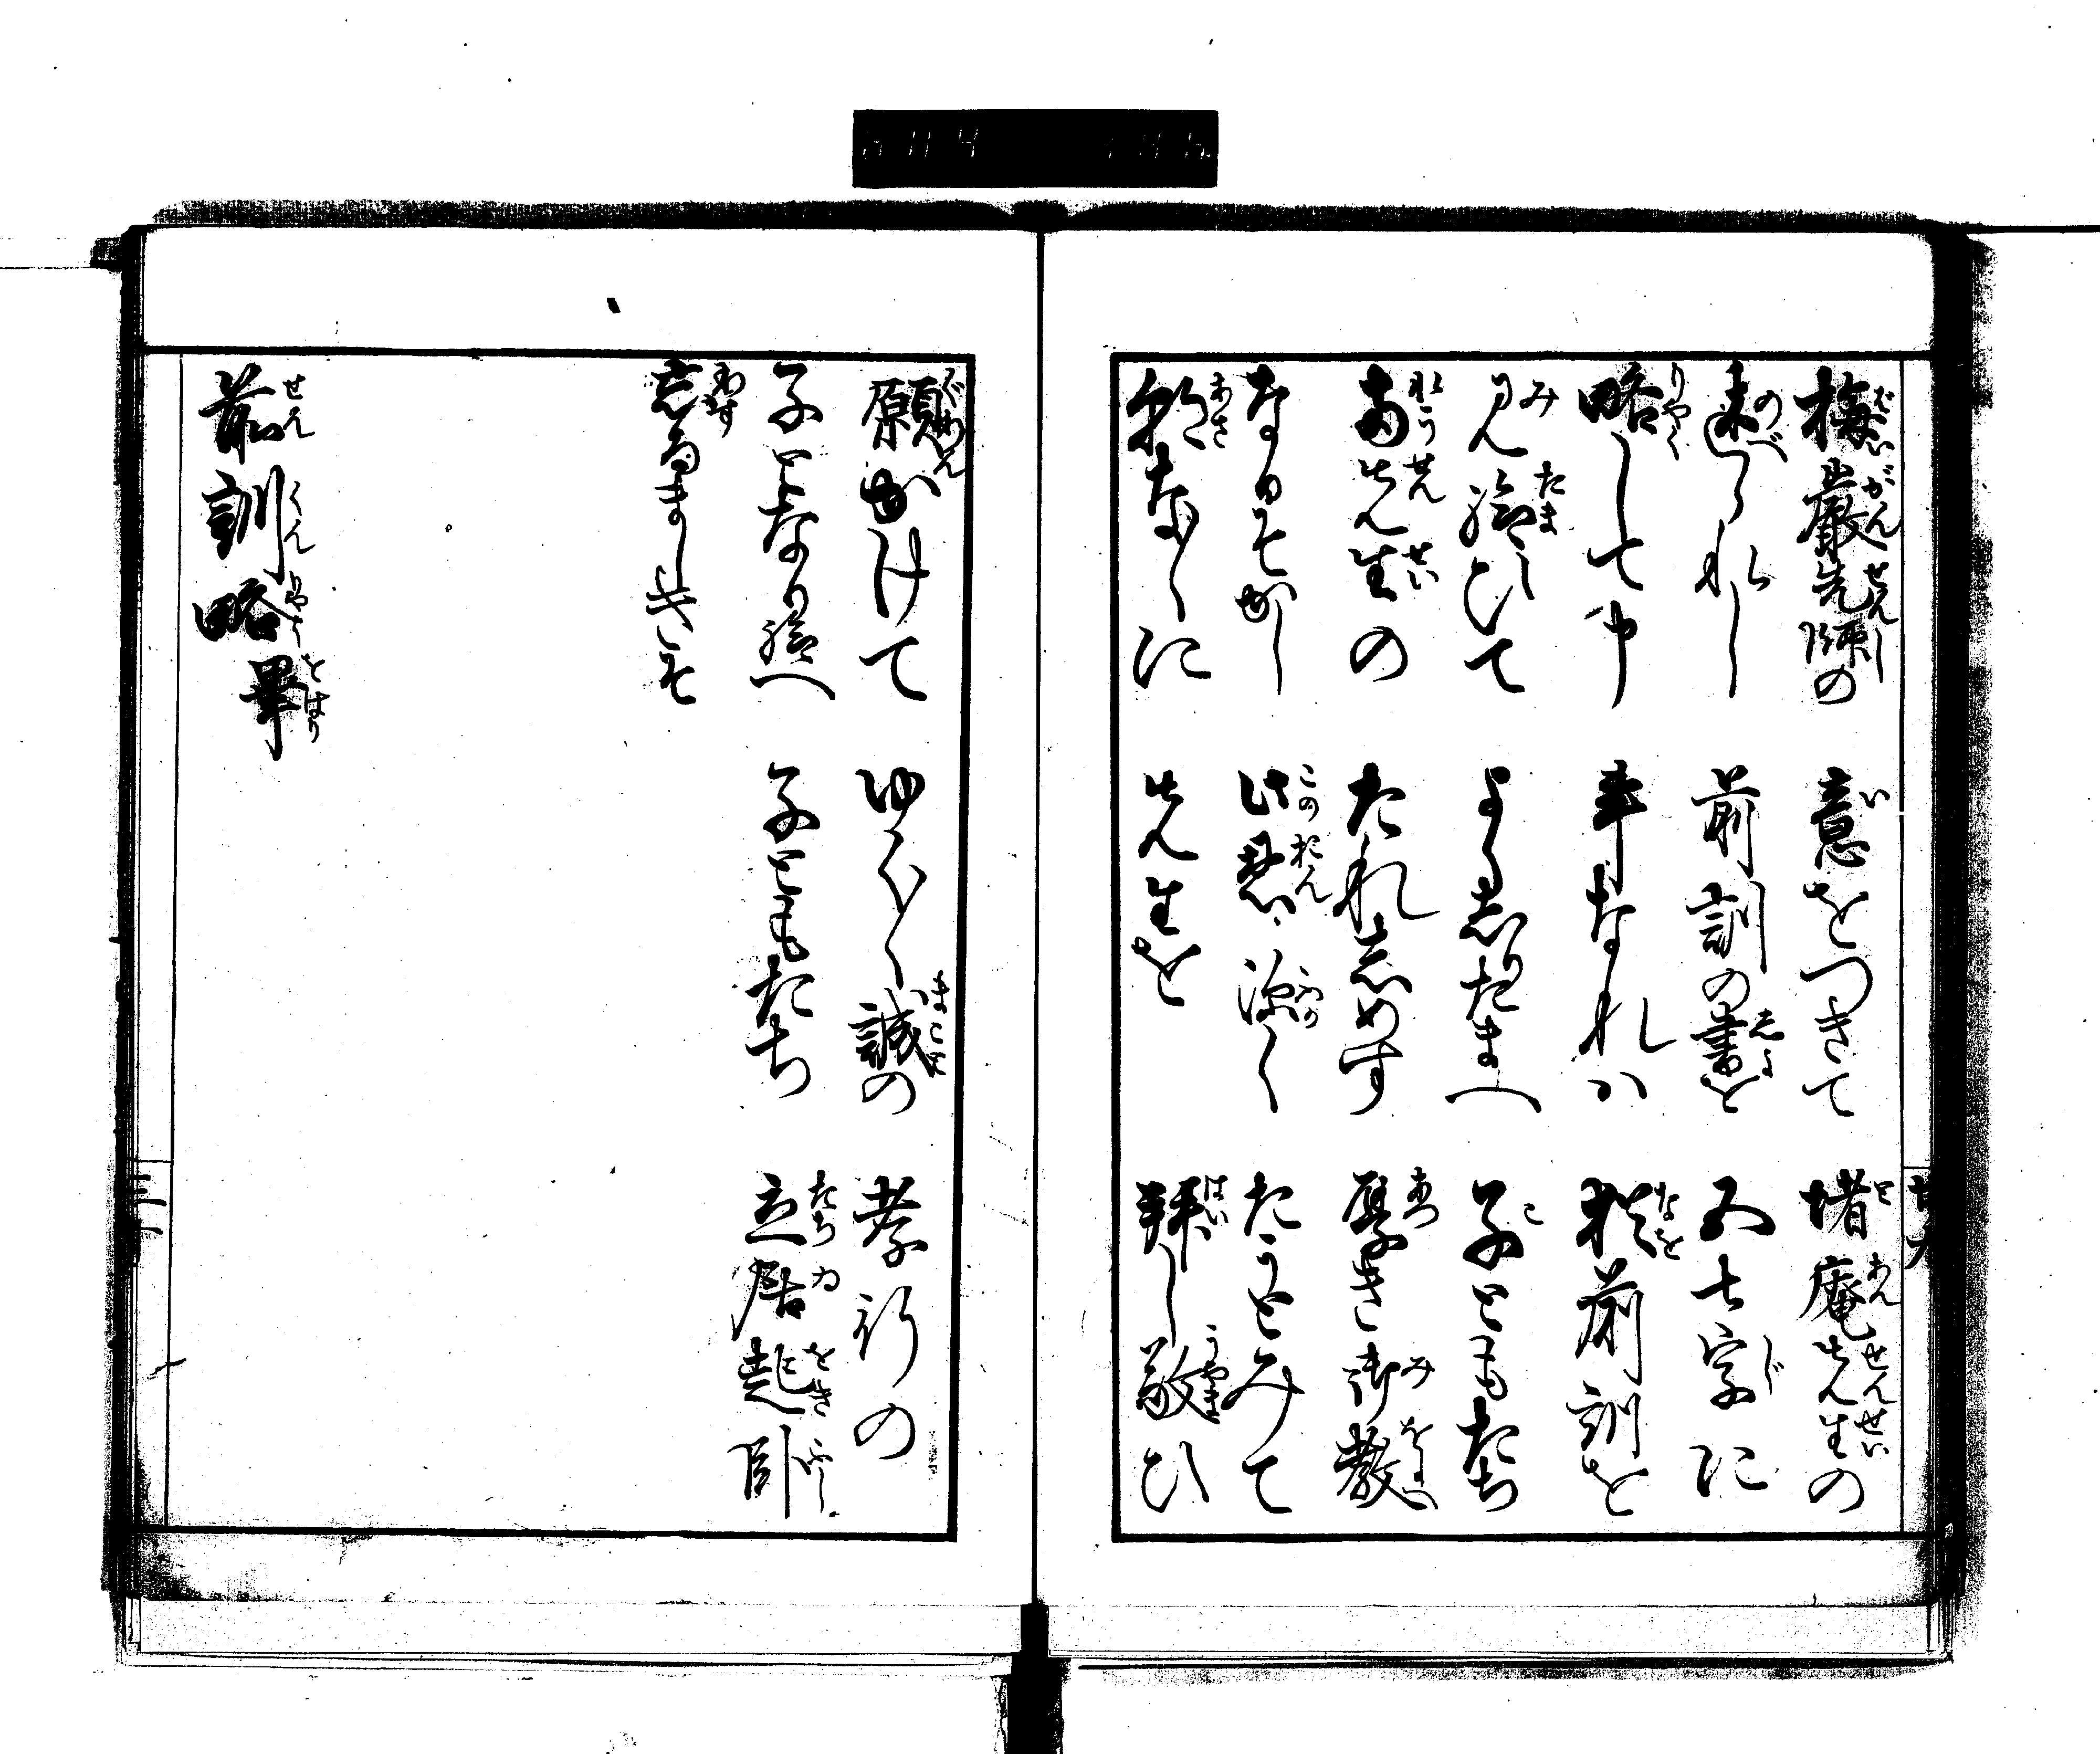 梅巌先師の　意をつきて　堵庵先生の
述られし　前訓の書を　五七字に
略して申　事なれハ　猶前訓を
見給ひて　よくしりたまへ　子ともたち
両先生の　たれしめす　厚き御教
なかりせは　此恩深く　たうとみて
朝な〳〵に　先生を　拝し敬ひ
願かけて　ゆく〳〵誠の　孝行の
子となり給へ　子ともたち　立居起臥
忘るましきそ
前訓略畢
廿九
三十